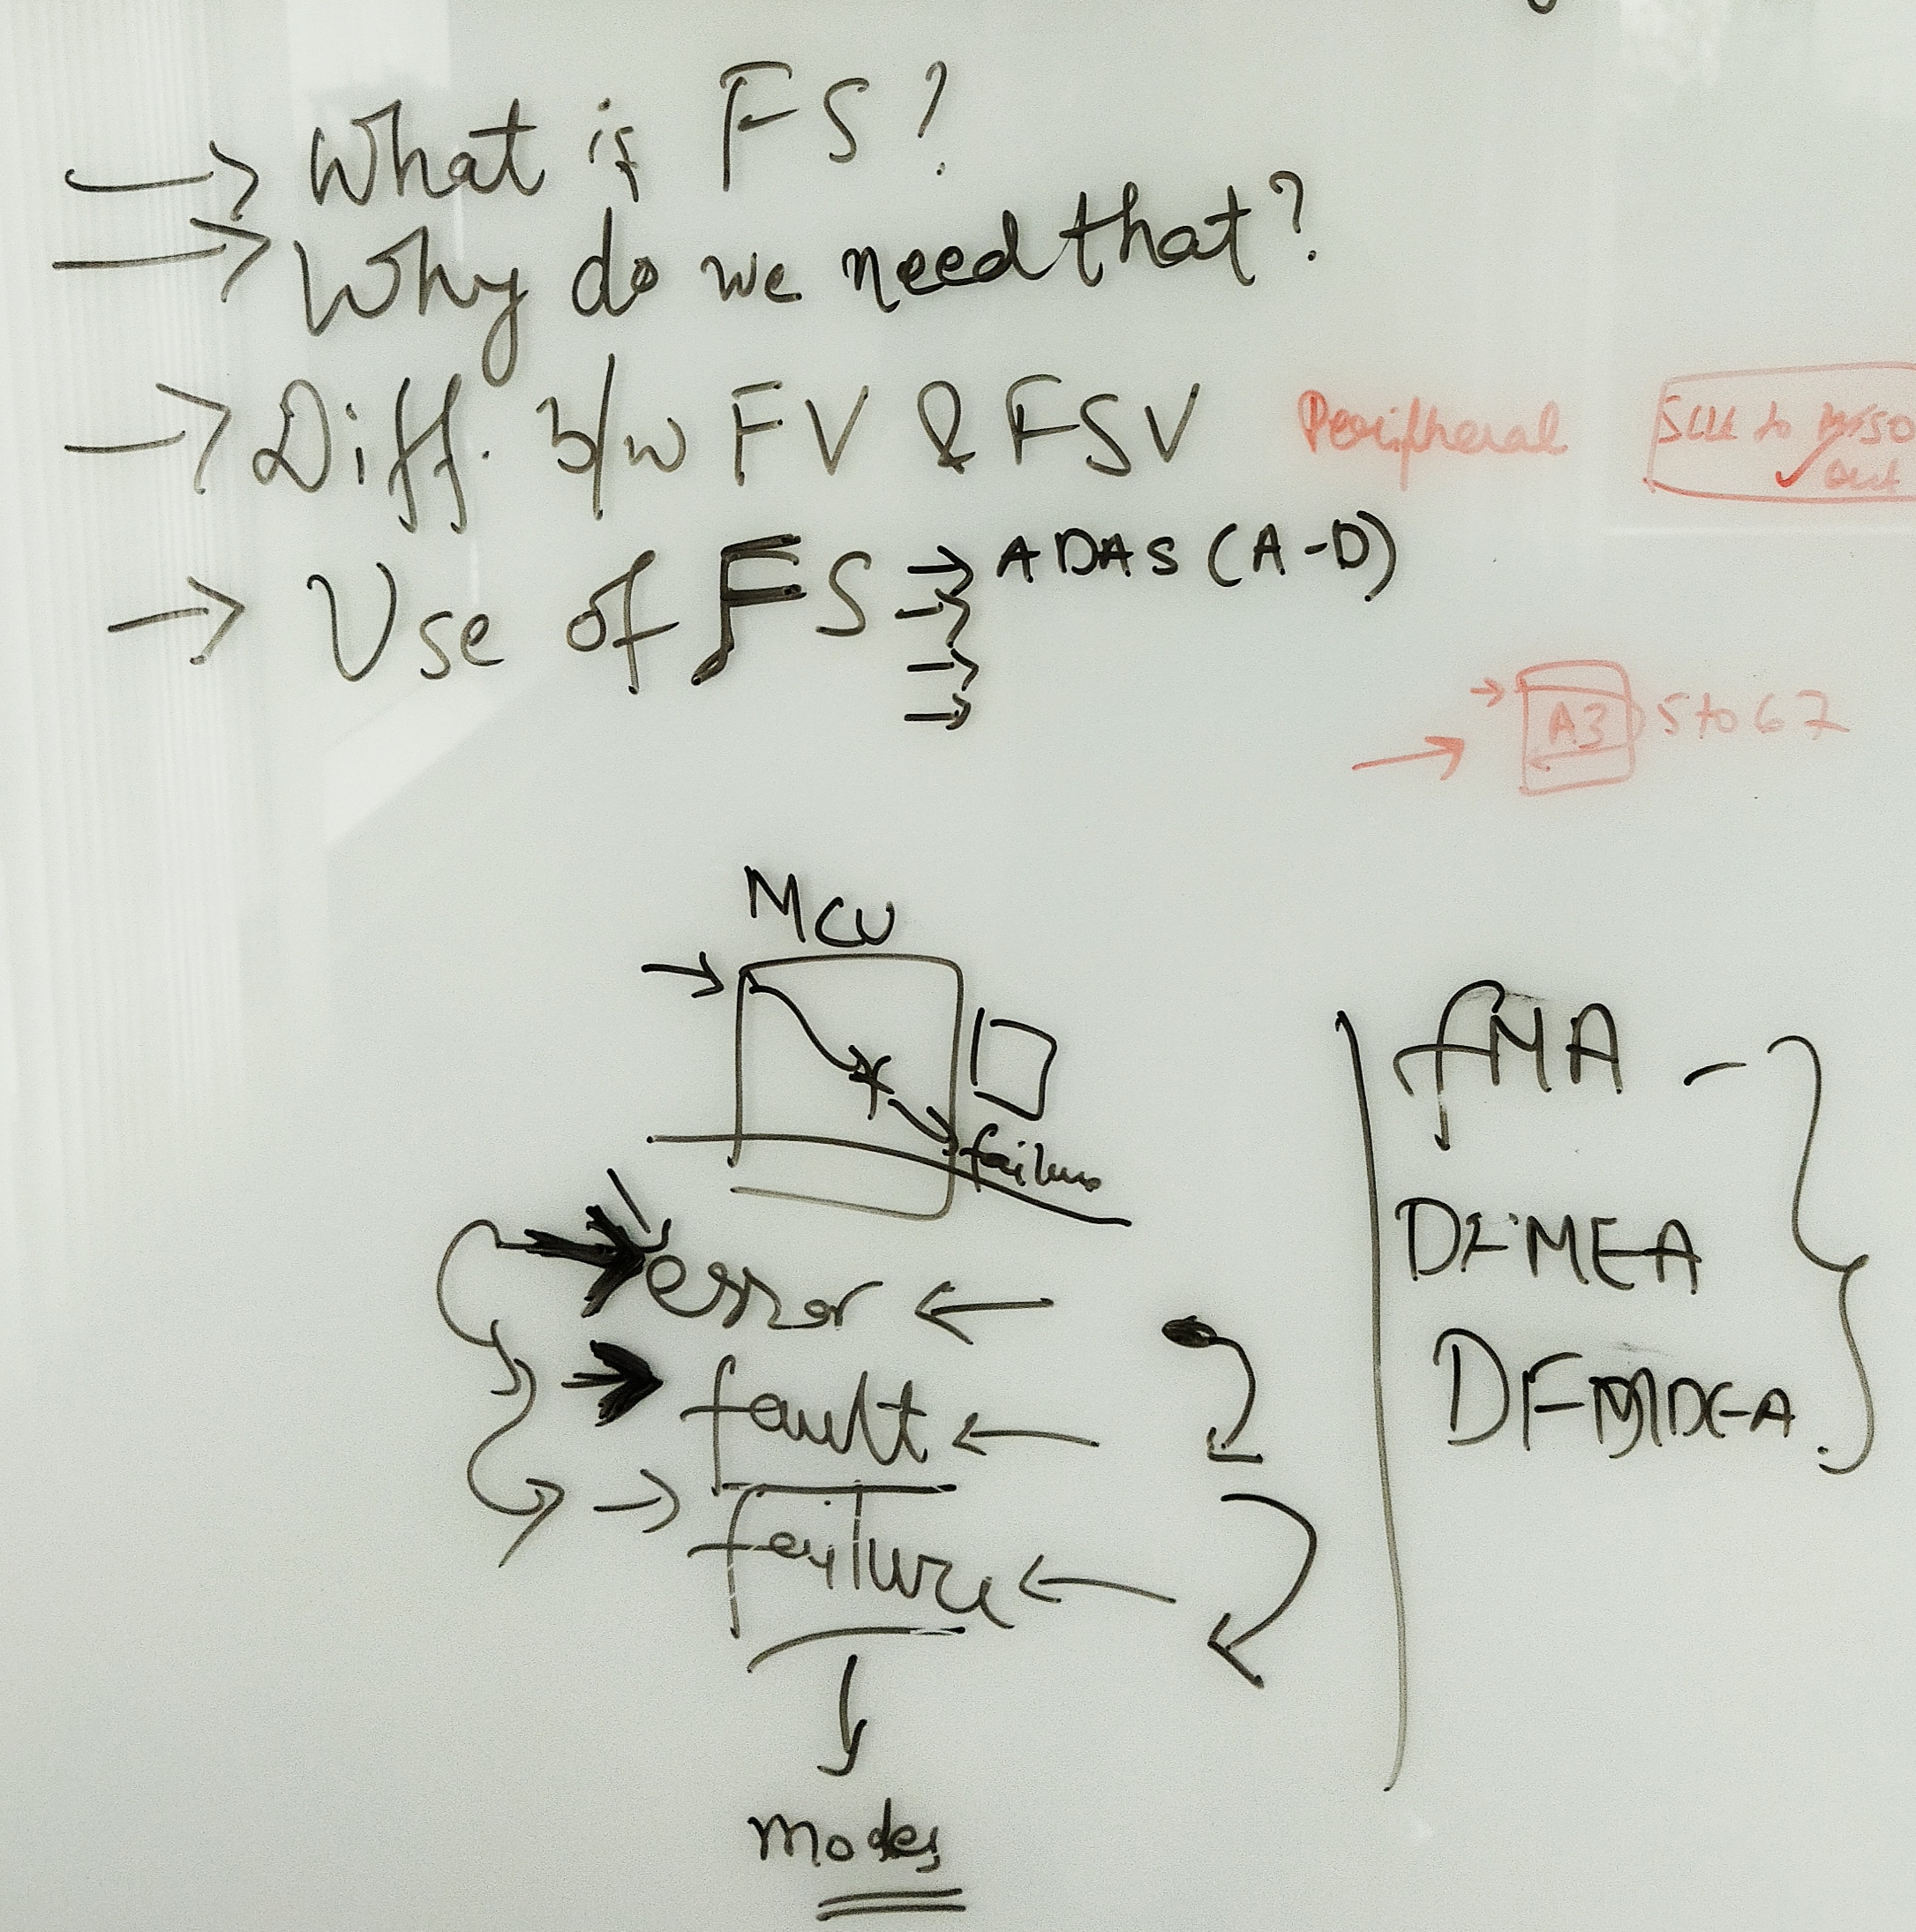 → What is FS?
→ Why do we need that?
→ Diff. b/w FV & FSV
Peripheral
to
out
→ Use of FS → ADAS (A-D)
A3 5 to 67
MCU
failure
error
fault
failure
modes
FMA
DFMEA